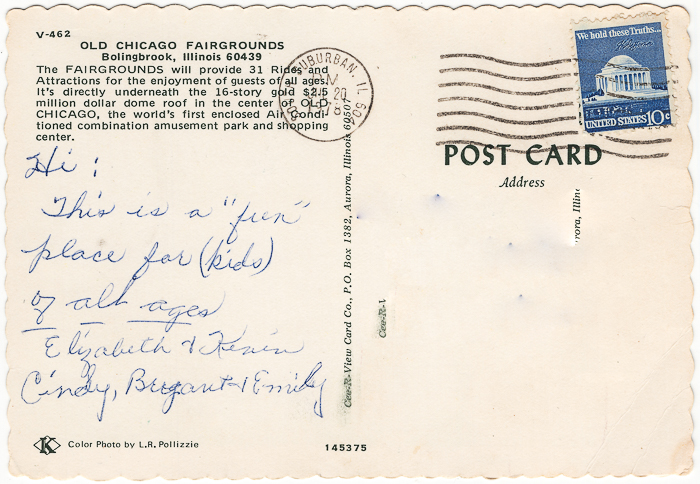 V-462
OLD CHICAGO FAIRGROUNDS
Bolingbrook, Illinois 60439
The FAIRGROUNDS will provide 31 Rides and
Attractions for the enjoyment of guests of all ages.
It's directly underneath the 16-story gold $2.5
million dollar dome roof in the center of OLD
CHICAGO, the world's first enclosed Air Condi-
tioned combination amusement park and shopping
center.
Hi;
This is a "fun"
place for (kids)
of all ages
Elizabeth & Kevin
Cindy, Bryant & Emily
K
Color Photo by L.R. Pollizzie
145375
Cee-R-View Card Co., P.O. Box 1382, Aurora, Illinois 60507
Cee-R-V
SUBURBAN, IL 60
20
We hold these Truths...
UNITED STATES 10c
POST CARD
Address
rora, Illin